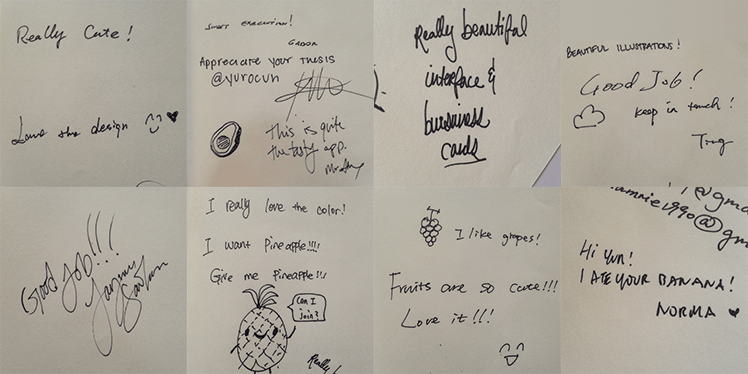 Really Cute!
Love the design
SWEET EXECUTION!
Appreciate your thesis
@yurocun
This is quite
the tasty app.
Really beautiful
interface &
bussiness
cards
BEAUTIFUL ILLUSTRATIONS!
Good Job!
keep in touch!
Good Job!!!
I really love the color!
I want Pineapple!!!!
Give me Pineapple!!!
Can I
join?
Really!
I like grapes!
Fruits are so cute!!!
Love it!!!
Hi Yun!
I ATE YOUR BANANA!
NORMA